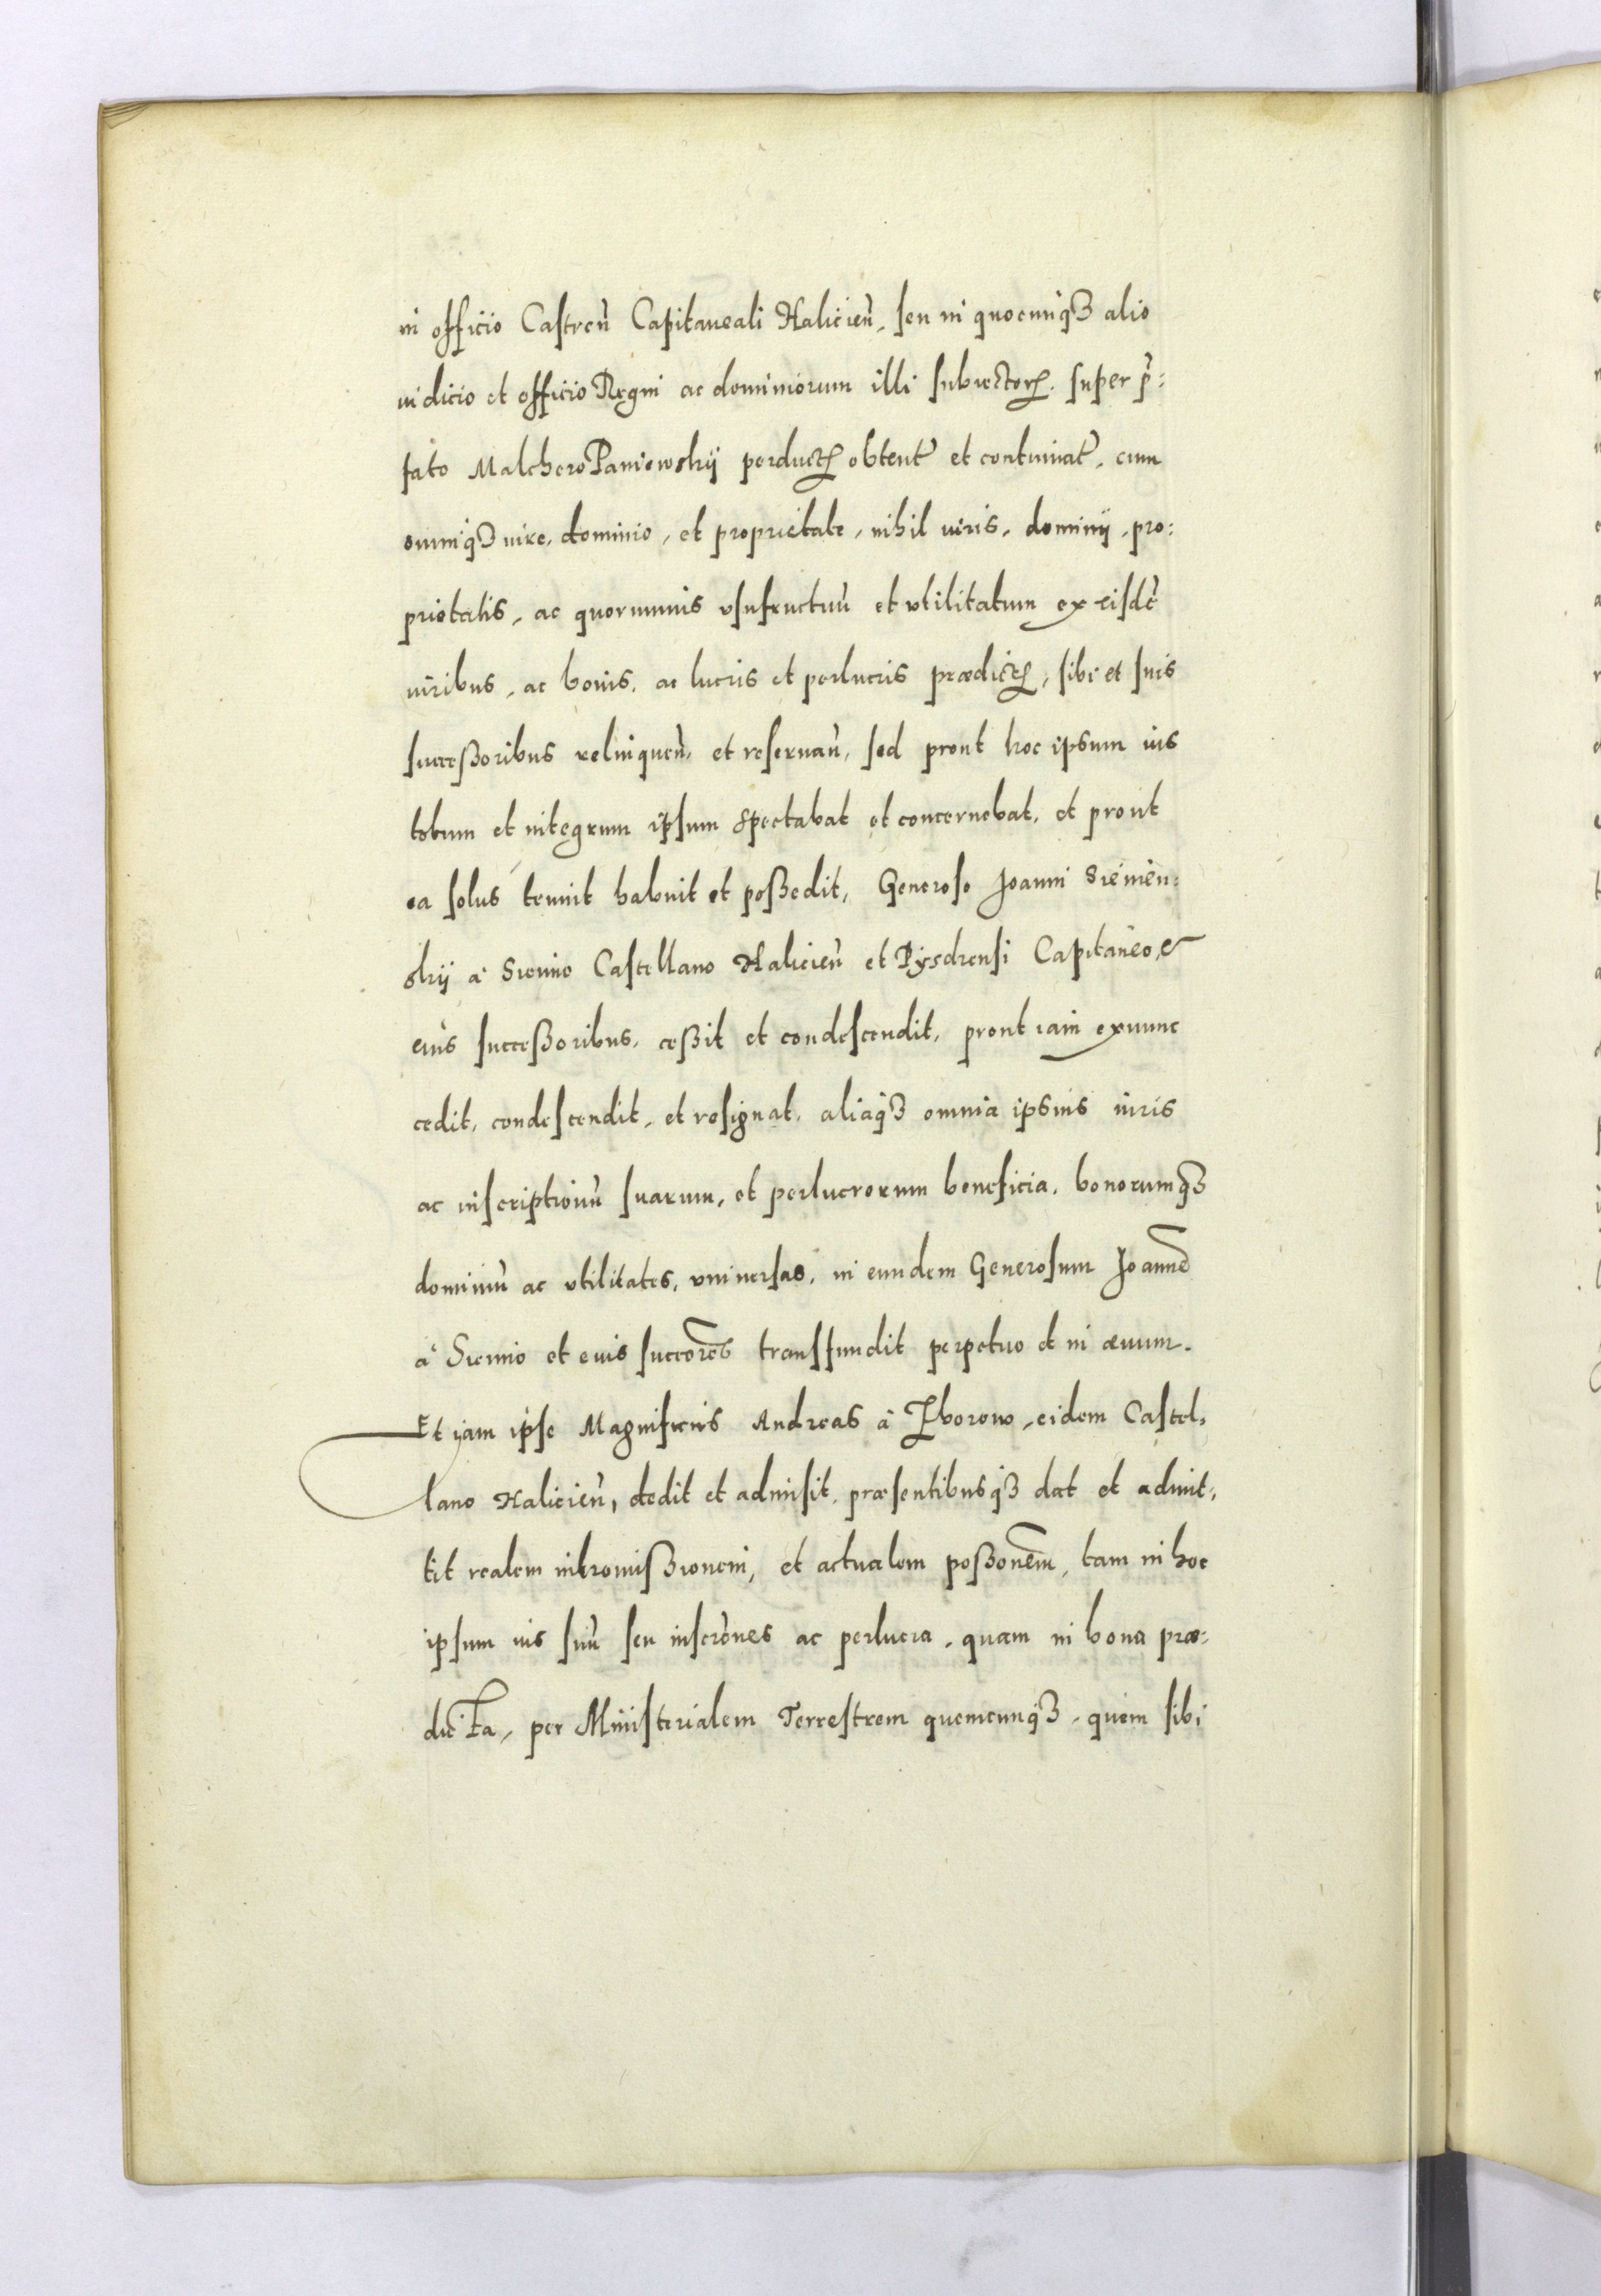 in officio Castren̄ Capitaneali Halicien̄, seu in quocunq̃ alio
iudicio et officio Regni ac dominiorum illi subiectoꝝ. super p̄:
fato Malchero Paniowskij perductꝝ obtent̄ et continuat̄, cum
omniq̃ iure, dominio, et proprietate, nihil iuris, dominij, pro:
prietatis, ac quorumuis vsufructuū et vtilitatum ex eisdē
iuribus, ac bonis, ac lucris et perlucris prædictꝝ, sibi et suis
successoribus relinquen̄, et reseruan̄, sed prout hoc ipsum ius
totum et integrum ipsum spectabat et concernebat, et prout
ea solus tenuit habuit et possedit, Generoso Joanni Siemień:
skij à Sienno Castellano Halicien̄ et Pysdrensi Capitaneo, &
eius successoribus, cessit et condescendit, prout iam exnunc
cedit, condescendit, et resignat, aliaq̃ omnia ipsius iuris
ac inscriptionū suarum, et perlucrorum beneficia, bonorumq̃
dominiū ac vtilitates, vniuersas, in eundem Generosum Joannē
à Sienno et euis succores̄ transfundit perpetuo et in æuum.
Et jam ipse Magnificus Andreas à Zborow, eidem Castel,
lano Halicien̄, dedit et admisit, præsentibusq̃ dat et admit,
tit realem intromissionem, et actualem possonem̄, tam in hoc
ipsum ius suū seu inscrōnes ac perlucra, quam in bona præ:
dicta, per Ministerialem Terrestrem quemcunq̃, quem sibi